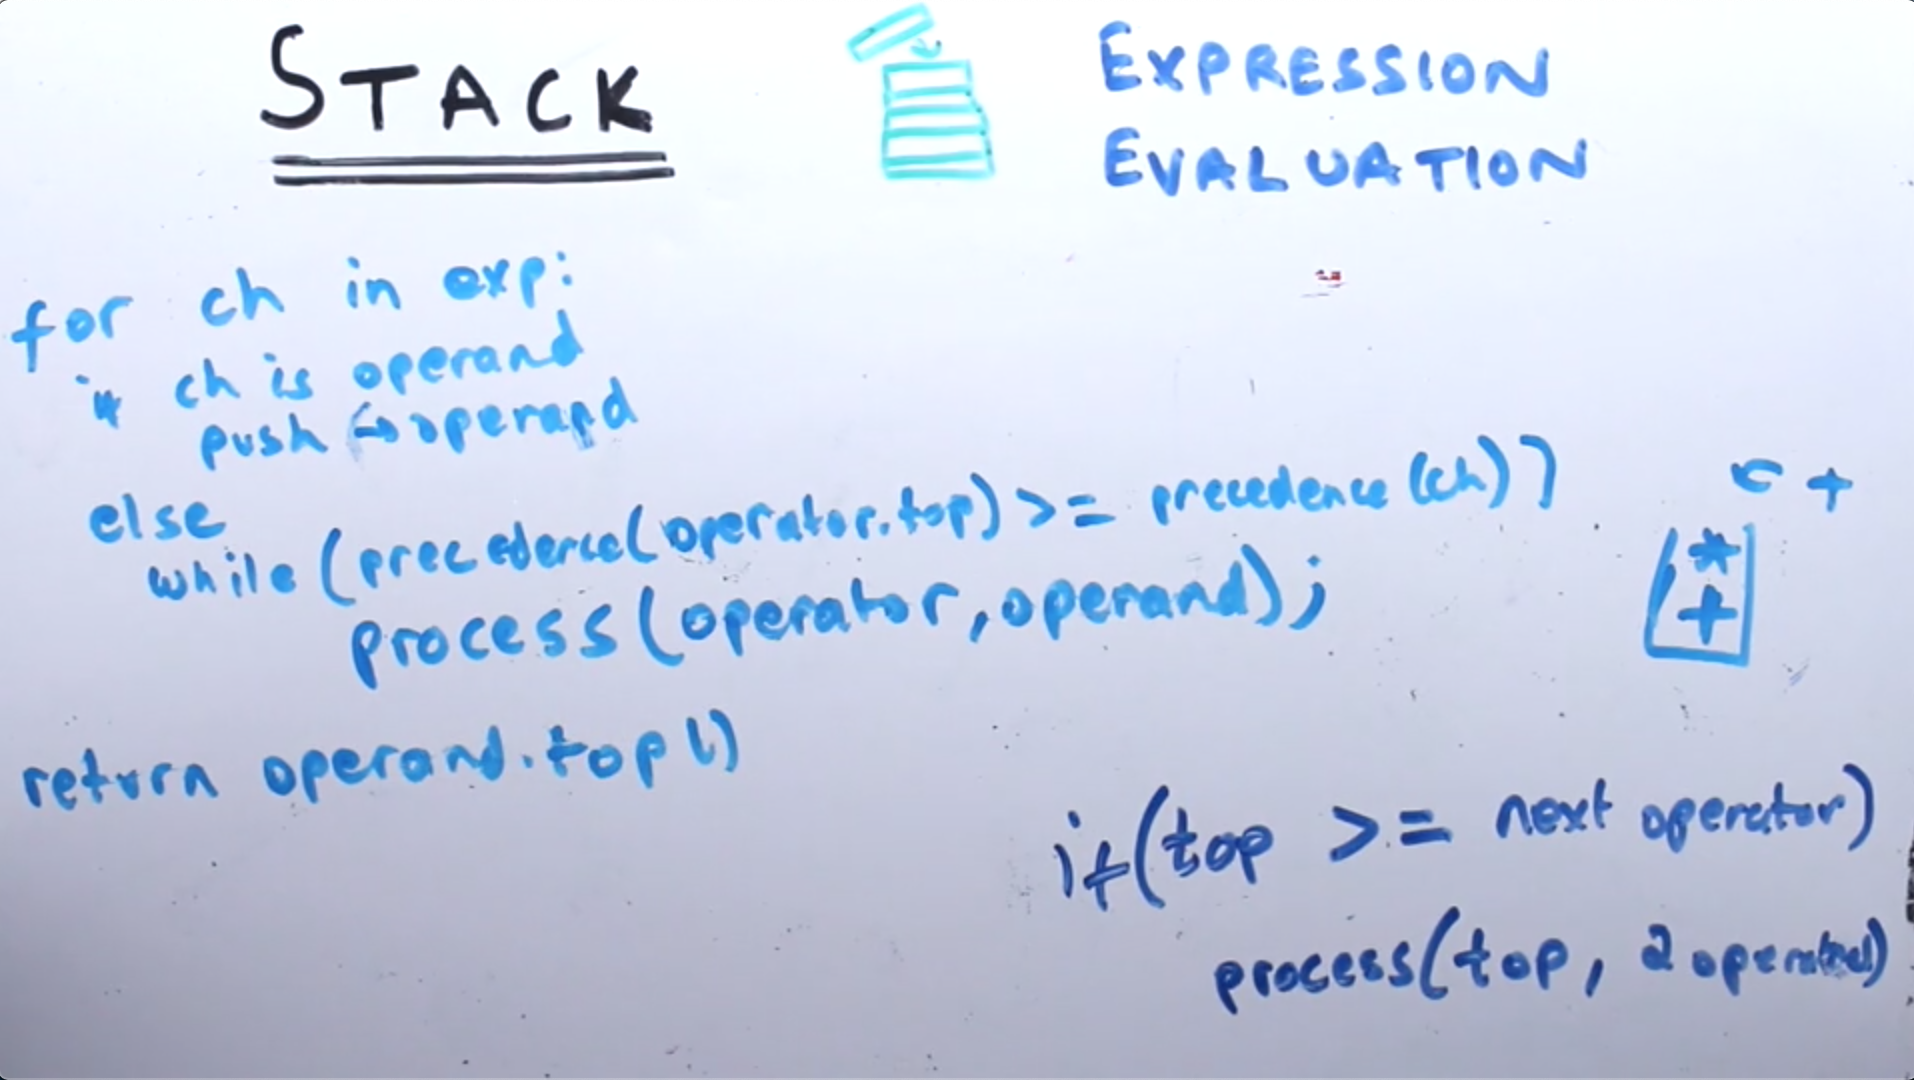 STACK
EXPRESSION
EVALUATION
for ch in exp:
if ch is operand
push → operand
else
while (precedence(operator.top) >= precedence(ch))
process(operator, operand);
return operand.top()
← +
*
+
if(top >= next operator)
process(top, 2 operand)